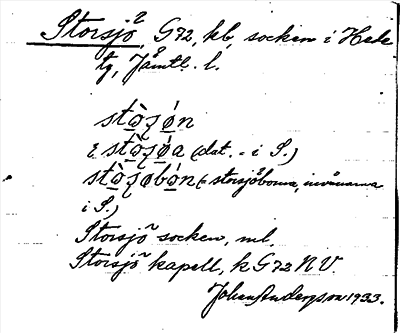 Storsjö², G72, kb, socken i Hede
tg, Jämtl. l.
stò̱ʂǿ̱n
i stò̱ʂǿ̱a (dat. = i S.)
stò̱ʂøbǿ̱n (= storsjöborna, invånarna
i S.)
Storsjö socken, ml.
Storsjö kapell, k G72 NV.
Johan Anderson 1933.